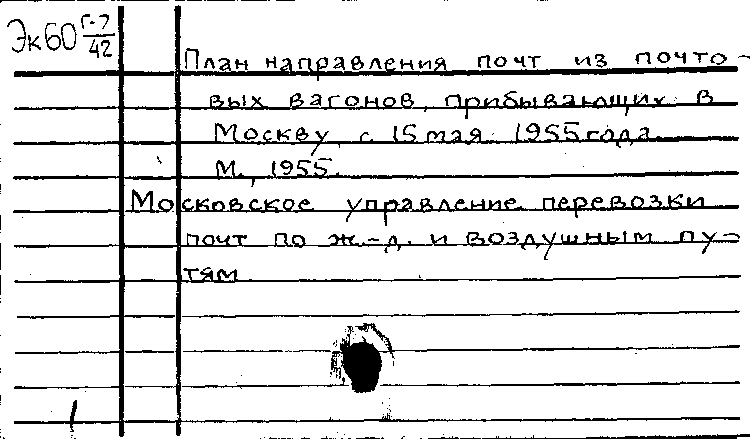 Эк60 Г-7/42
План направления почт из почто-
вых вагонов, прибывающих в
Москву с 15 мая 1955 года
М., 1955.
Московское управление перевозки
почт по ж.-д. и воздушным пу-
тям